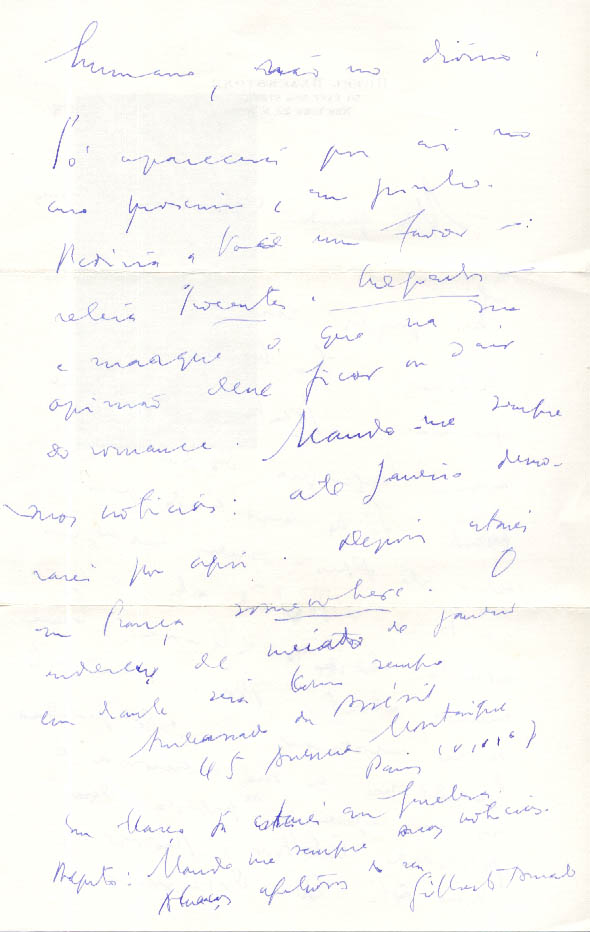 humano, não no divino.
Só aparecerei por aí no
ano proximo e em junho.
Pediria a Você um favor —:
releia Inocentes
e marque o que na sua
opinião deve ficar ou sair
do romance. Mande-me sempre
suas noticias: até Janeiro demo-
rarei por aqui. Depois estarei
em França somewhere. O
endereço de meiados de janeiro
em diante será como sempre
Ambassade du Brésil
45 Avenue Montaigne
Paris (VIII)
Em Março já estarei em Genebra.
Repito: Mande-me sempre suas noticias.
Abraços do seu
Gilberto Amado